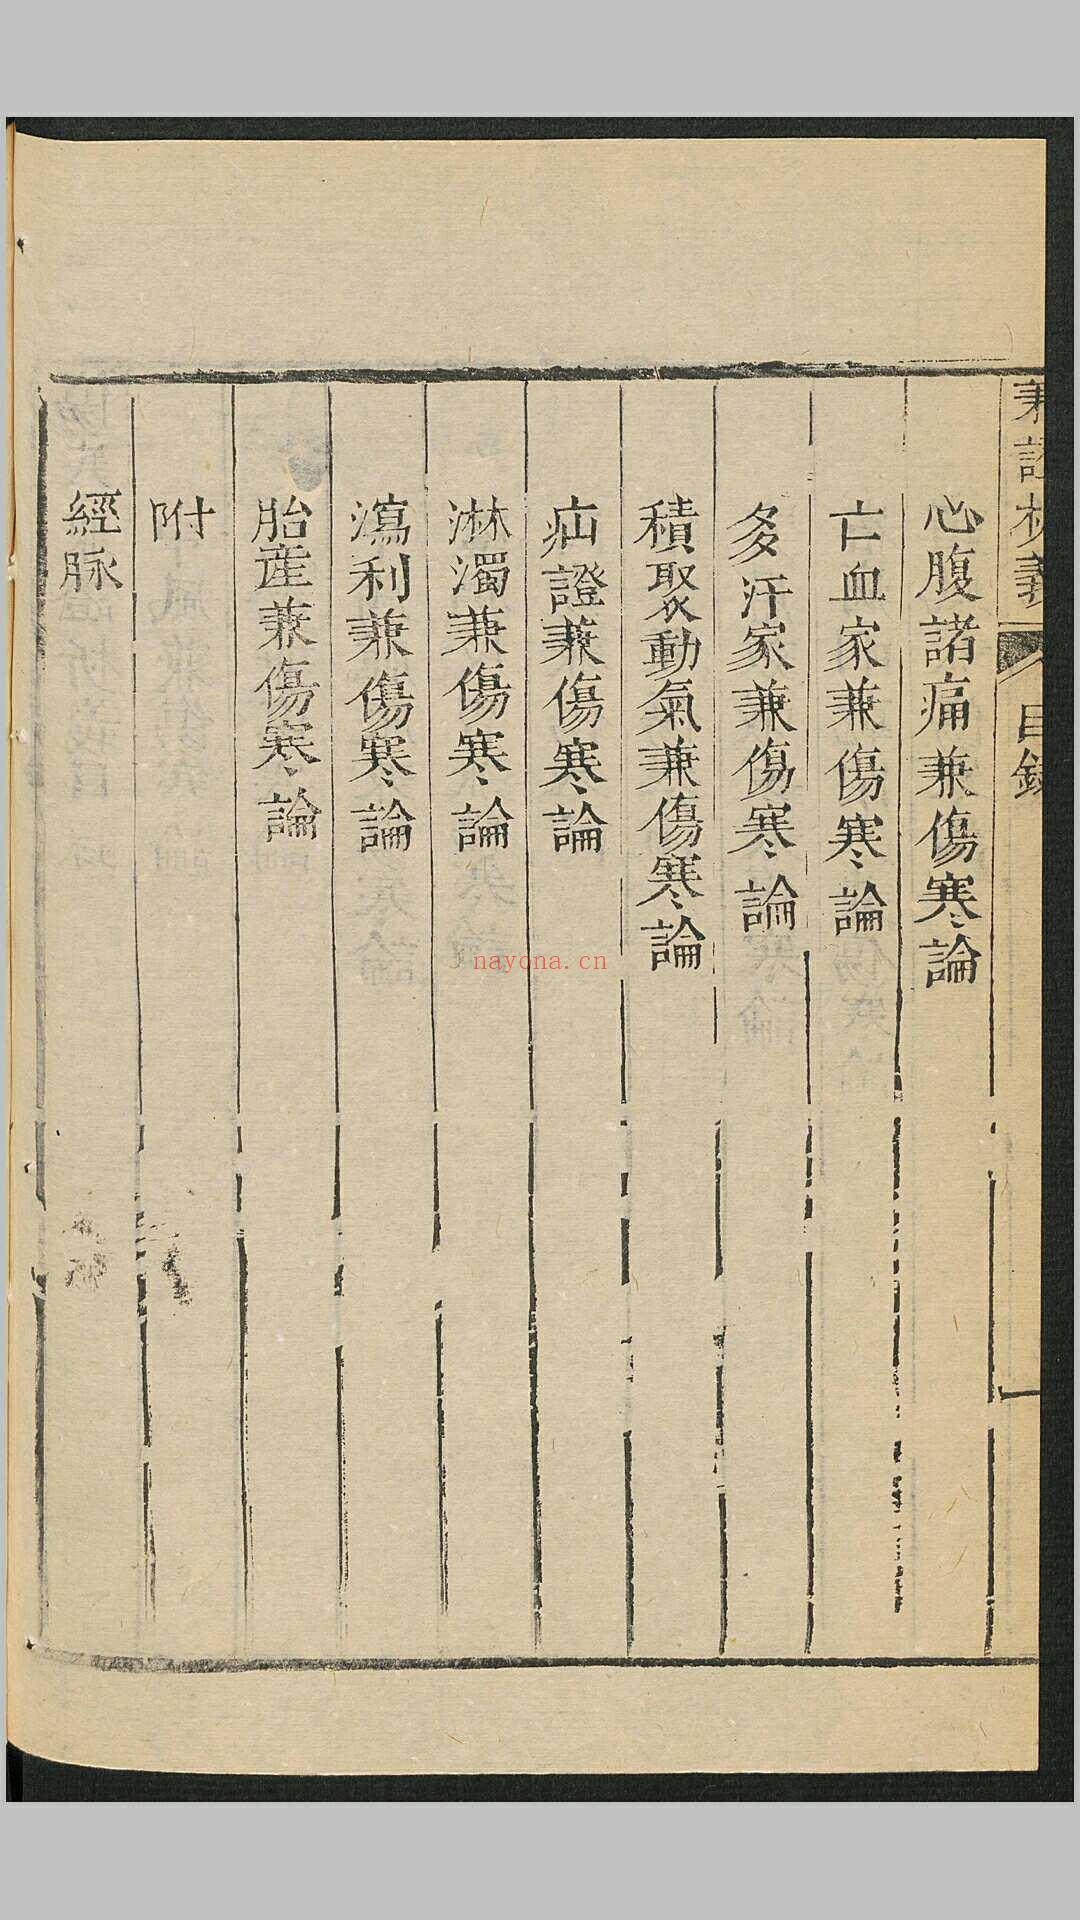 兼證析義
目錄
一
心腹諸痛兼傷寒論
亡血家兼傷寒論
多汗家兼傷寒論
積聚動氣兼傷寒論
疝證兼傷寒論
淋濁兼傷寒論
瀉利兼傷寒論
胎產兼傷寒論
附
經脉
nayona.cn